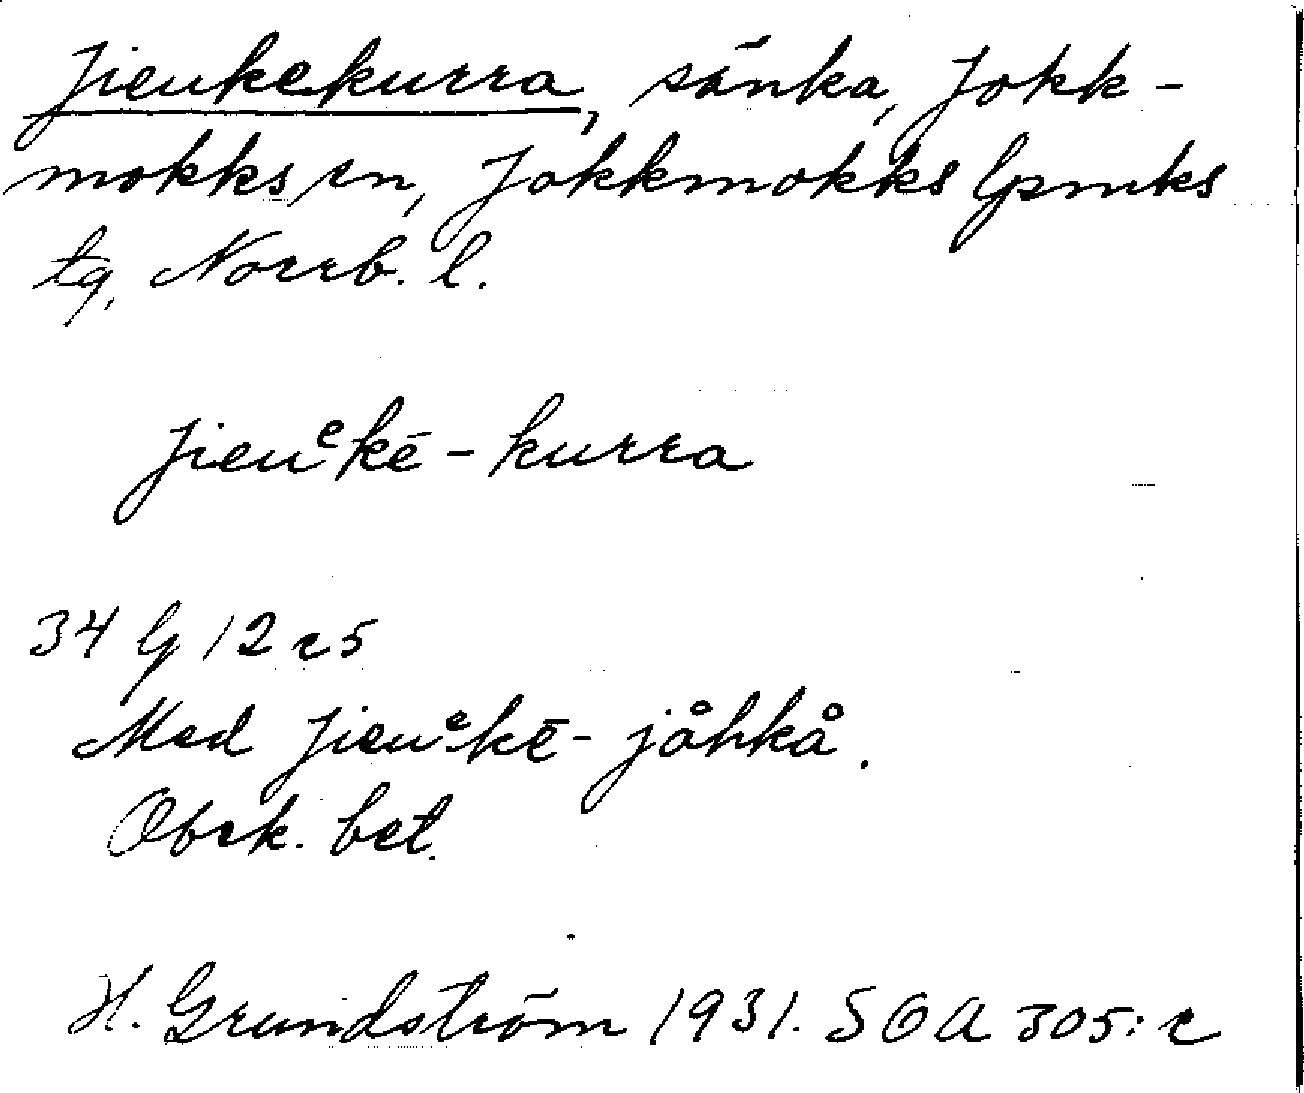 Jieukekurra, sänka, Jokk-
mokks sn, Jokkmokks lpmks
tg, Norrb. l.
Jieuᵉkē-kurra
34 G 12 c5
Med Jieuᵉkē-jåhkå.
Obek. bet.
H. Grundström 1931. SOA 305:c